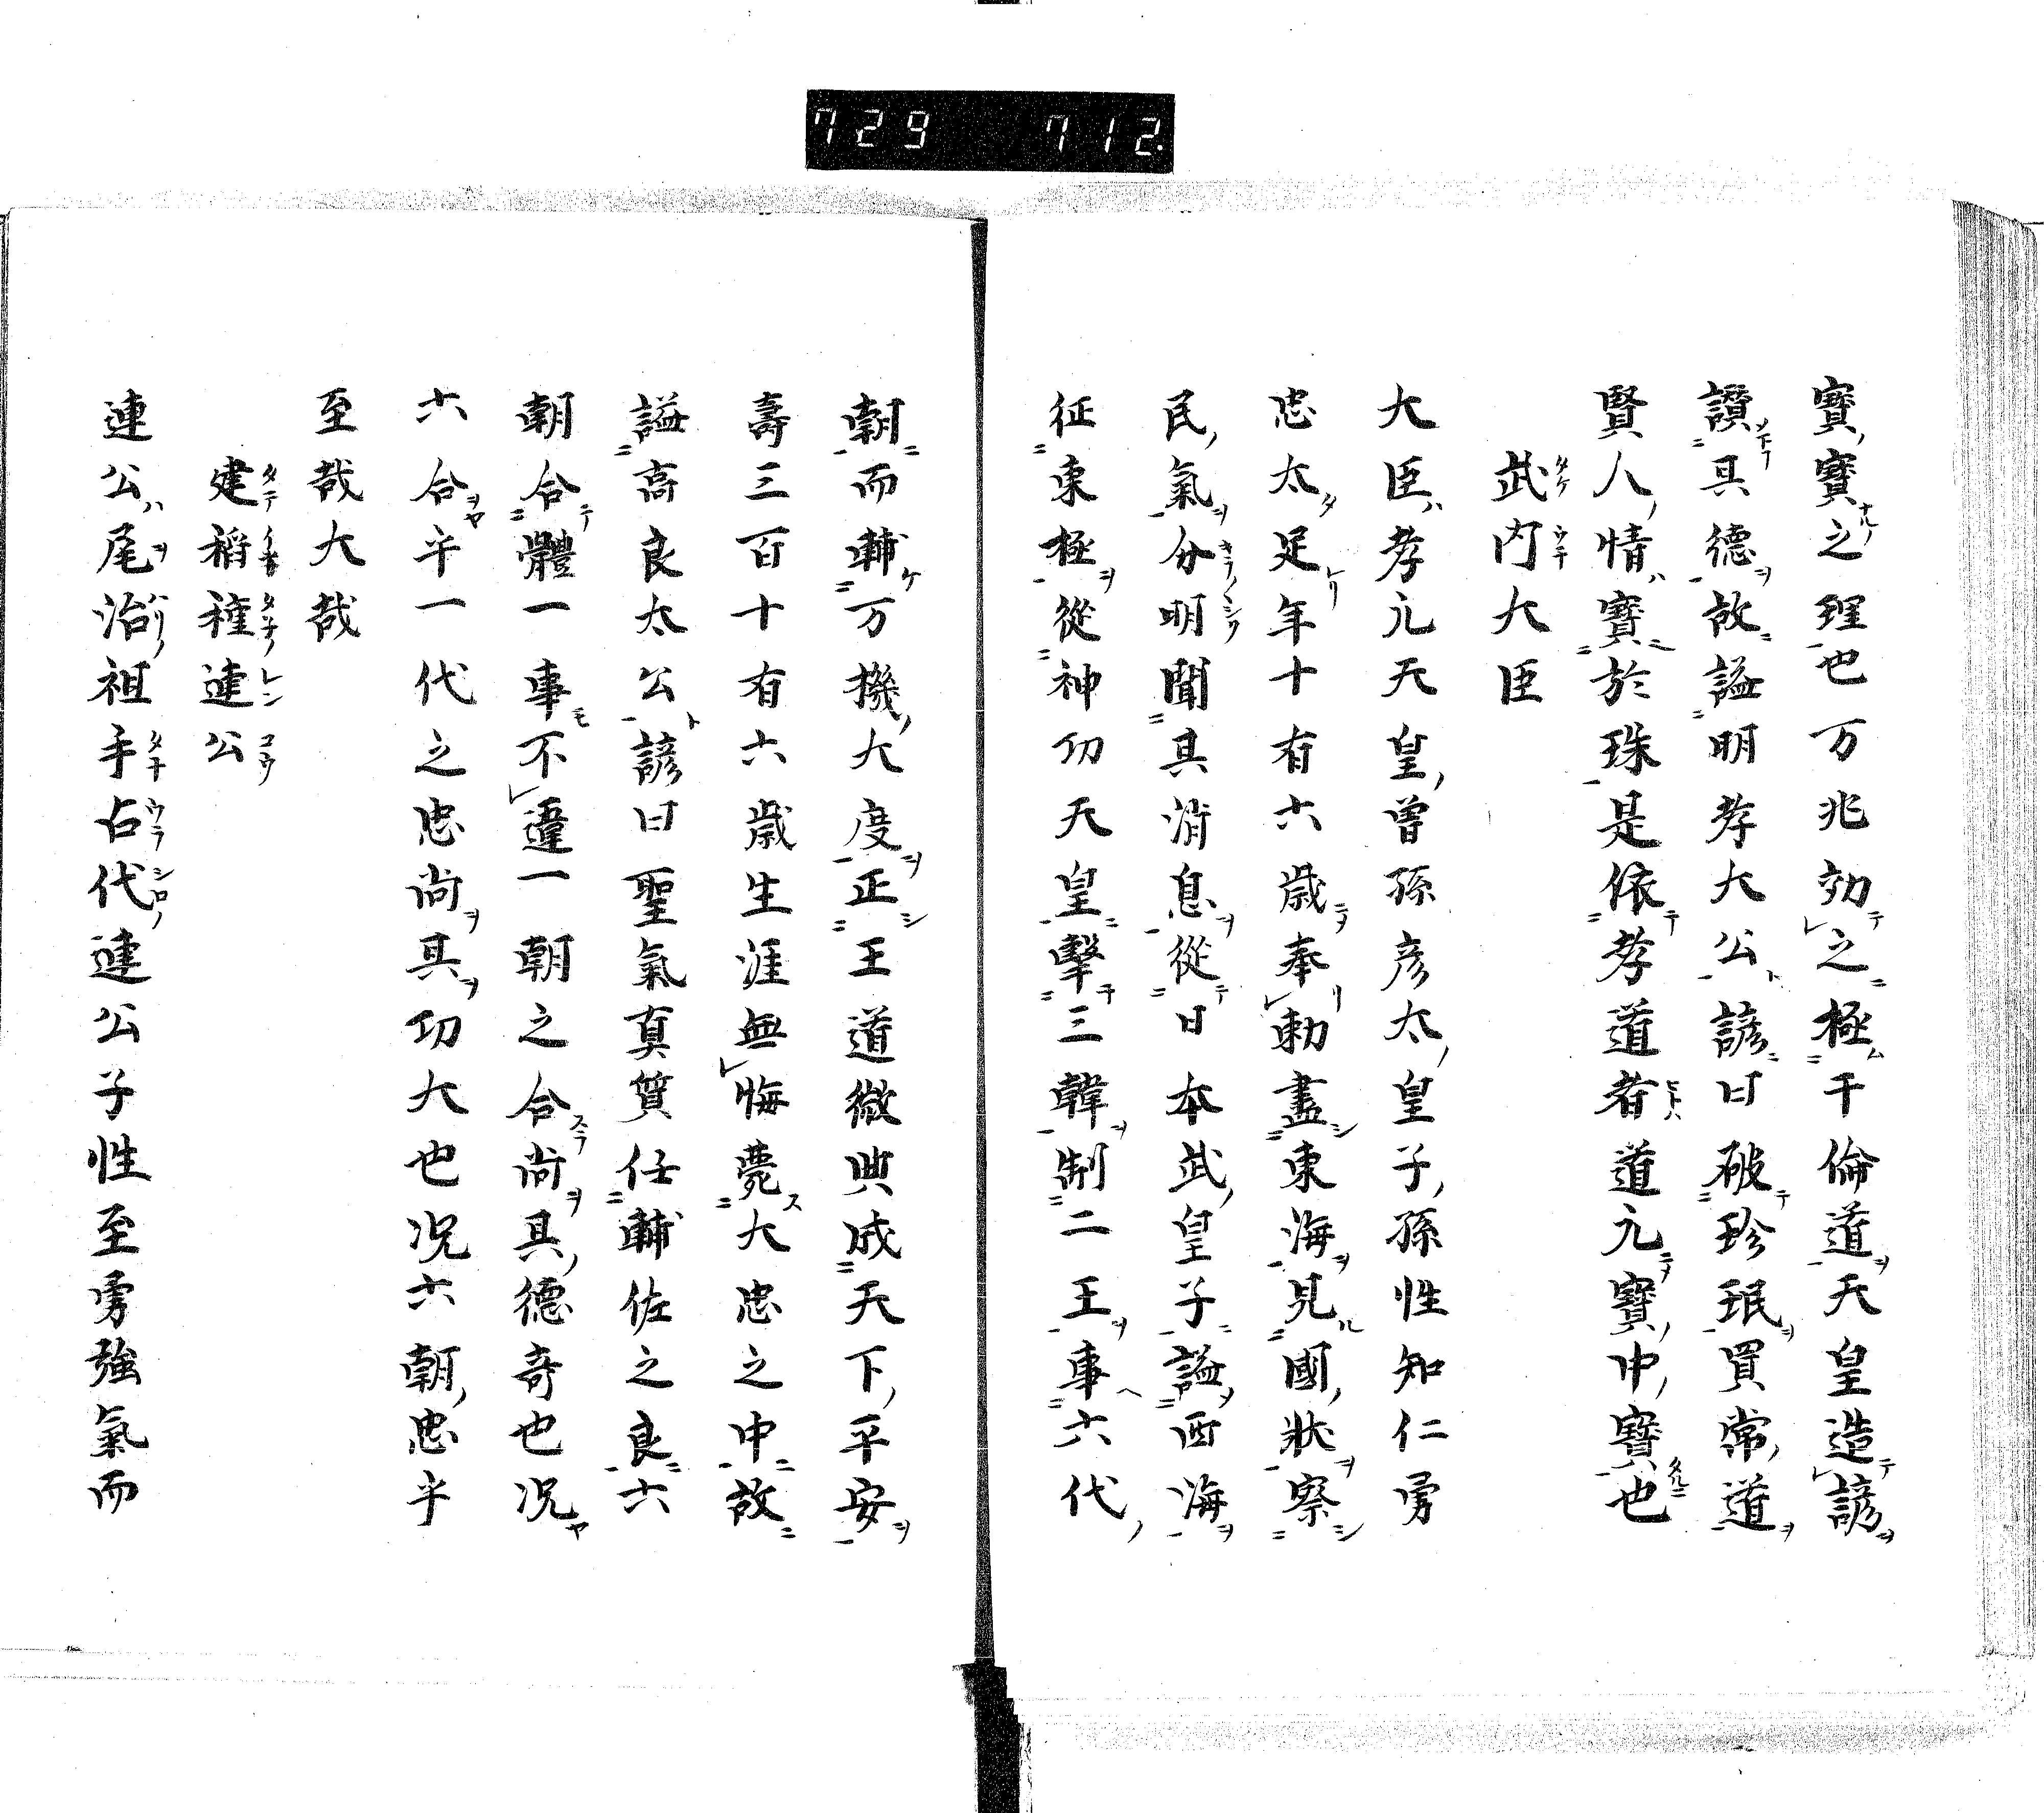 729 712.
寶寶之理也万兆効之極千倫道天皇造諺
讚其德故謚明孝大公諺曰破珍珉買常道
賢人情寶於珠是依孝道者道元寶中寶也
武内大臣
大臣孝元天皇曾孫彦太皇子孫性知仁勇
忠太足年十有六歳奉勅盡東海見國狀察
民氣分明聞其消息從日本武皇子謚西海
征東極從神功天皇擊三韓制二王事六代
朝而輔万機大度正王道微典成天下平安
壽三百十有六歳生涯無悔薨大忠之中故
謚高良太公諺曰聖氣真質任輔佐之良六
朝合體一事不違一朝之合尚其德奇也况
六合乎一代之忠尚其功大也况六朝忠乎
至哉大哉
建稻種連公
連公尾治祖手占代連公子性至勇強氣而